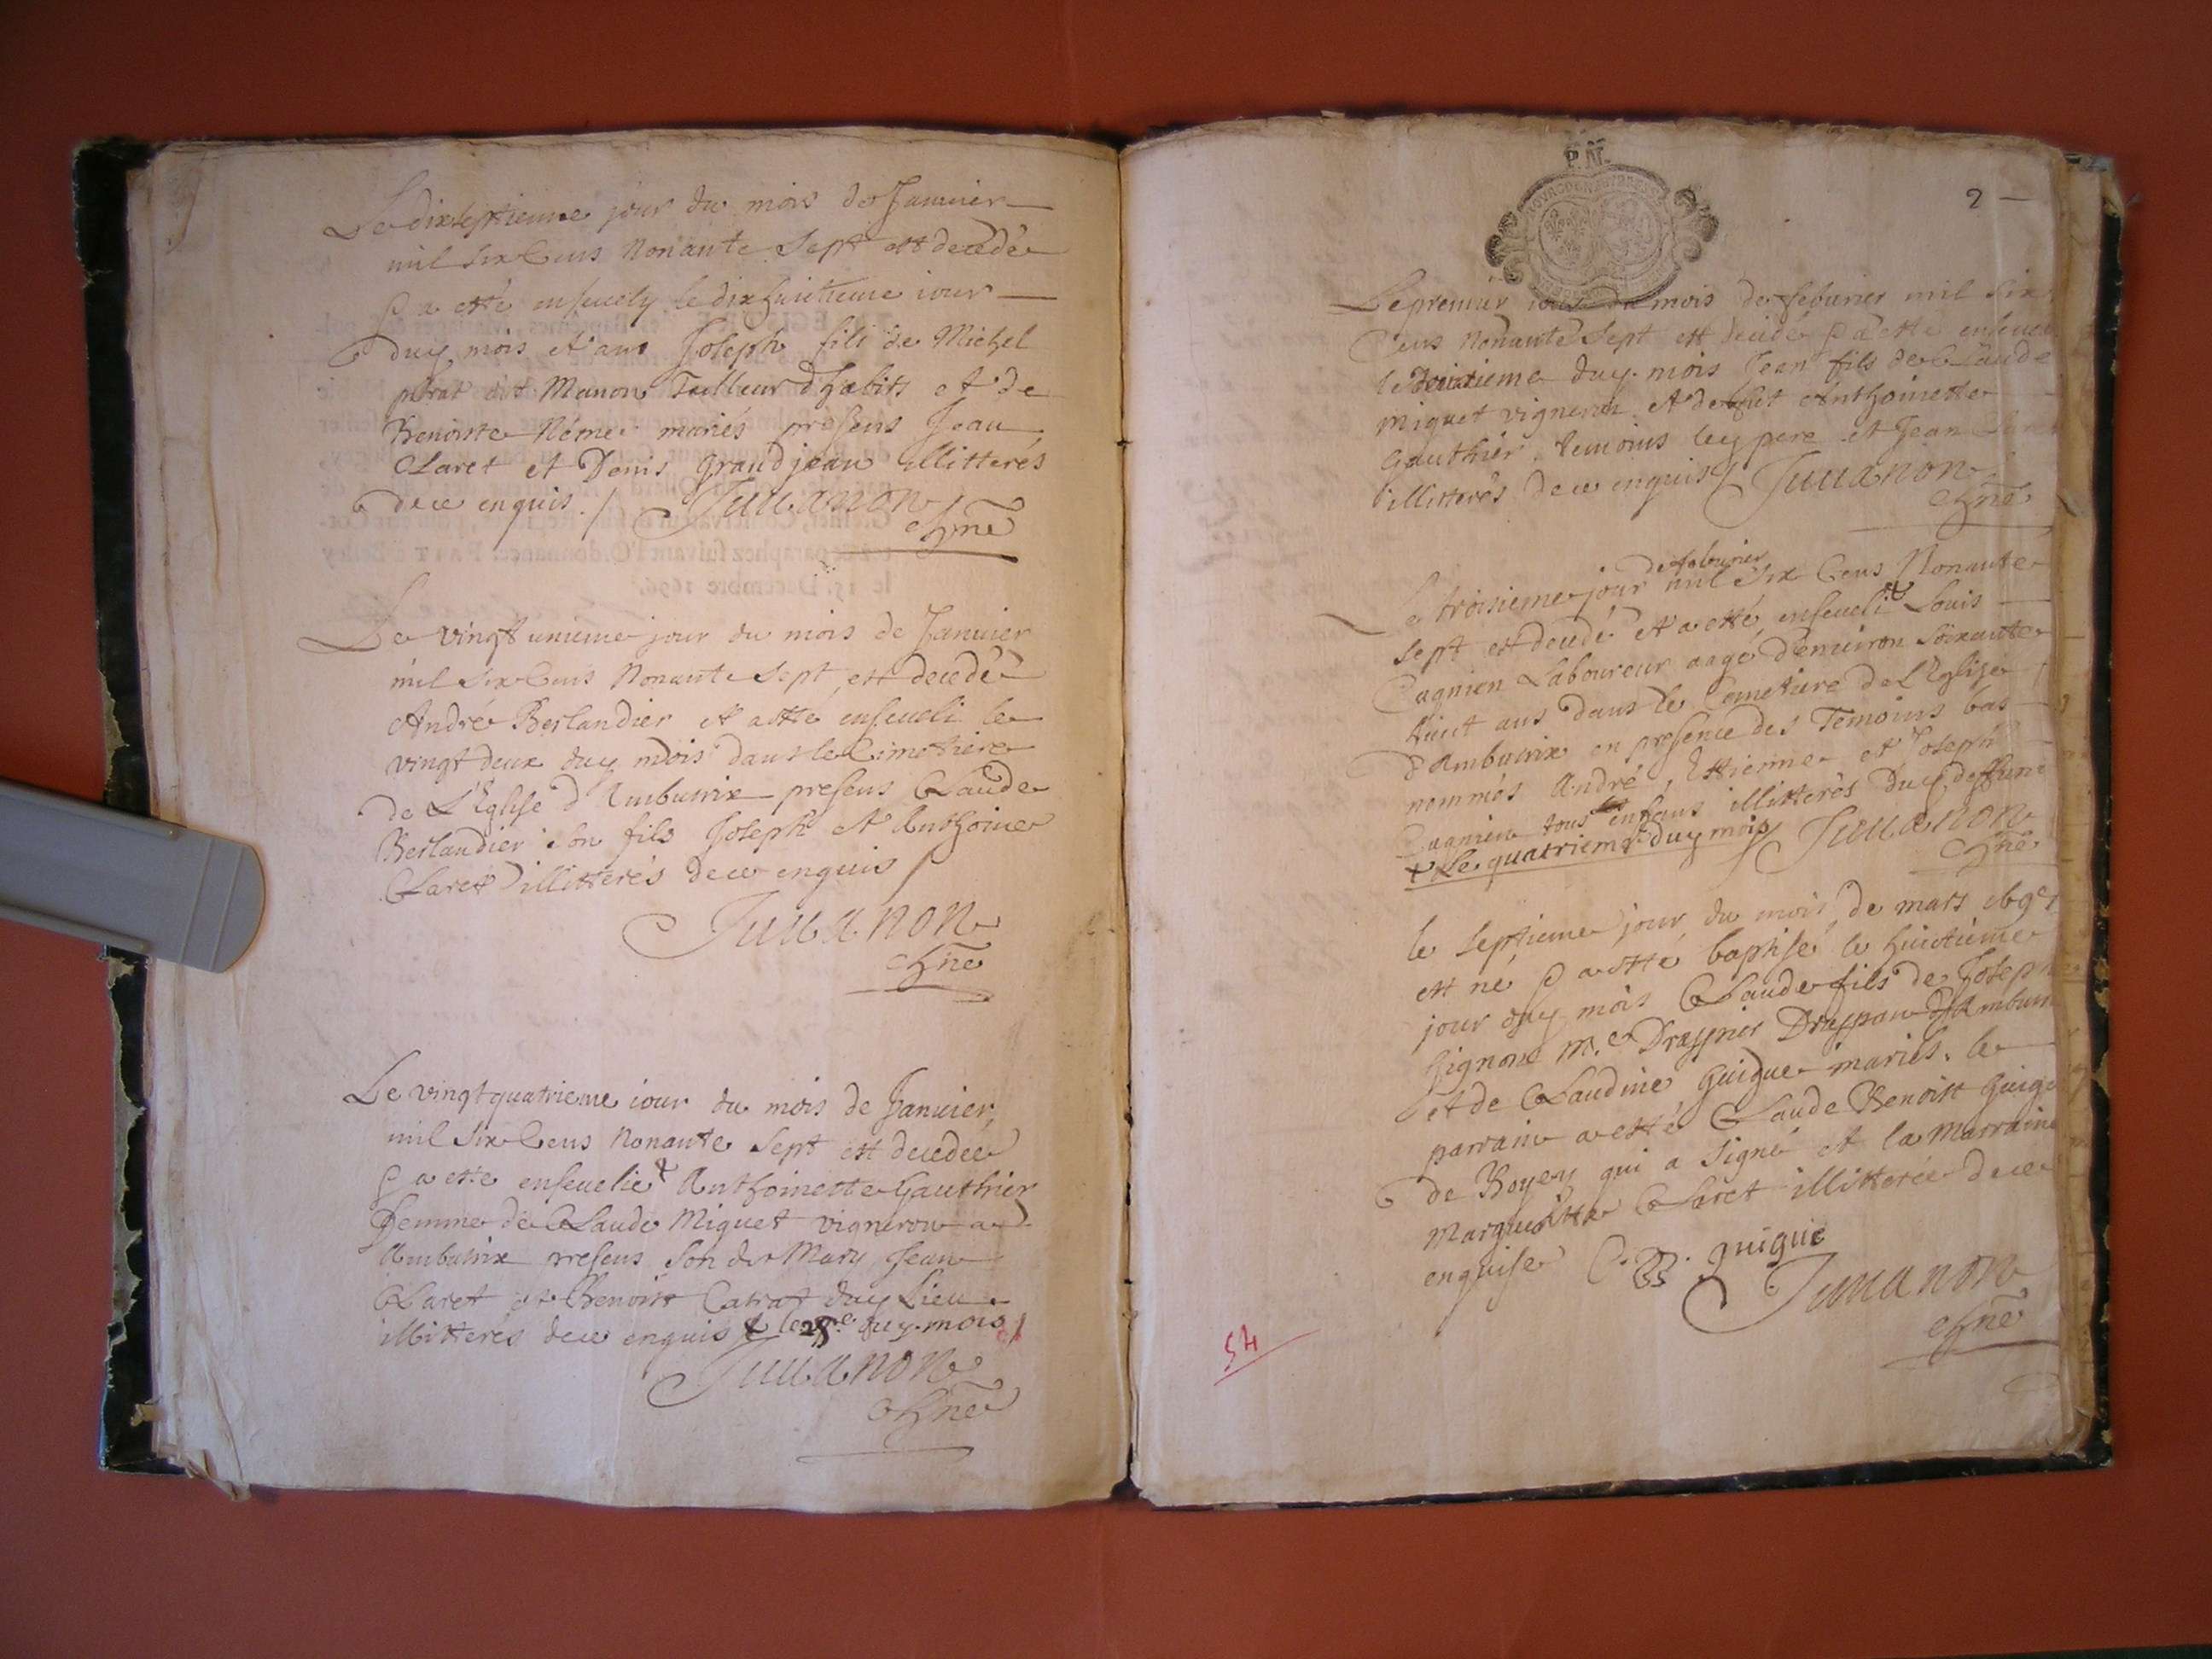 Le dixseptieme jour du mois de Januier
mil six Cens Nonante Sept est decedé
& a esté enseuely le dixhuitieme iour
duy mois et an Joseph fils de Michel
dit Manon Tailleur d'habits et de
Benoiste Néme mariés presens Jean
Claret et Denis Grandjean illitterés
de ce enquis. / Juuanon
chne
Le vingt unieme jour du mois de Januier
mil six Cens Nonante sept, est decedé
André Berlandier et a esté enseueli le
vingt deux duy mois dans le Cimetiere
de L'Eglise d'Ambutrix presens Claude
Berlandier son fils Joseph et Anthoine
Claret illitterés de ce enquis /
Juuanon
chne
Le vingt quatrieme iour du mois de Januier
mil six Cens Nonante Sept est decedée
& a esté enseuelie + Anthoinette Gauthier
femme de Claude Miguet vigneron a
Ambutrix presens son dt Mary Jean
Claret et Benoist Catrat duy Lieu
illitterés de ce enquis + le 25me duy mois /
Juuanon
chne
P. N.
2
Le premier iour du mois de feburier mil six
Cens Nonante Sept est decedé & a esté
le deuxieme duy mois Jean fils de Claude
Miguet vigneron et de fut Anthoinette
Gauthier. temoins ley pere et Jean
illitterés de ce enquis / Juuanon
chne
de feburier
Le troisieme jour mil six Cens Nonante
sept est decedé et a esté enseueli + Louis
Cagnien Laboureur aagé d'enuiron soixante
huict ans dans le Cemetiere de L'Eglise
d'Ambutrix en presence des Temoins bas
nommés André, Ettienne et Joseph
Cagnien tous enfans illitterés duy
+ Le quatrieme duy mois / Juuanon
chne
le septieme jour du mois de mars
est né & a esté baptisé le huictieme
jour duy mois Claude fils de Joseph
Gignoux me Drappier
et de Claudine Guigue mariés. le
parrain a esté Claude Benoist
de Boyeu qui a signé et la Marraine
Marguerite Claret illitterée de ce
enquise C. B. guigue
Juuanon
chne
54